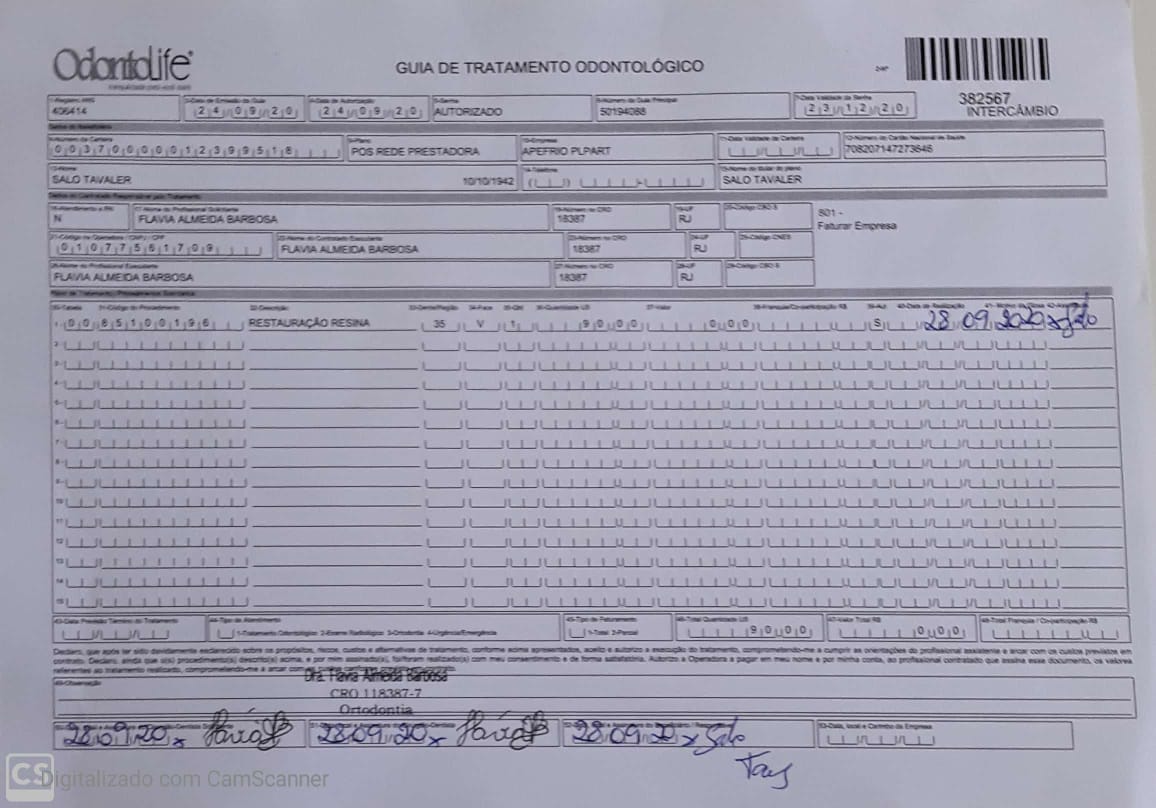 OdontoLife
GUIA DE TRATAMENTO ODONTOLÓGICO
1-Registro ANS 3-Data de Emissão da Guia 4-Data de Autorização 5-Senha 6-Número da Guia Principal 7-Data Validade da Senha
406414 24/09/20 24/09/20 AUTORIZADO 50194088 23/12/20
382567
INTERCÂMBIO
Dados do Beneficiário
8-Número da Carteira 9-Plano 10-Empresa 11-Data Validade da Carteira 12-Número do Cartão Nacional de Saúde
00370000012399518 POS REDE PRESTADORA APEFRIO PLPART 708207147273646
13-Nome 14-Telefone 15-Nome do titular do plano
SALO TAVALER 10/10/1942 SALO TAVALER
Dados do Contratado Responsável pelo Tratamento
16-Atendimento a RN 17-Nome do Profissional Solicitante 18-Número no CRO 19-UF 20-Código CBO S
N FLAVIA ALMEIDA BARBOSA 18387 RJ
801 -
Faturar Empresa
21-Código na Operadora / CNPJ / CPF 22-Nome do Contratado Executante 23-Número no CRO 24-UF 25-Código CNES
01077561709 FLAVIA ALMEIDA BARBOSA 18387 RJ
26-Nome do Profissional Executante 27-Número no CRO 28-UF 29-Código CBO S
FLAVIA ALMEIDA BARBOSA 18387 RJ
30-Tabela 31-Código do Procedimento 32-Descrição 33-Dente/Região 34-Face 35-Qtd 36-Quantidade US 37-Valor 38-Franquia/Co-participação R$ 39-Aut 40-Data de Realização
1- 00 85100196 RESTAURAÇÃO RESINA 35 V 1 90,00 0,00 S 28 09 2020 x Salo
2-
3-
4-
5-
6-
7-
8-
9-
10-
11-
12-
13-
14-
15-
43-Data Previsão Término do Tratamento 44-Tipo de Atendimento 45-Tipo de Faturamento 46-Total Quantidade US 47-Valor Total R$ 48-Total Franquia / Co-participação R$
1-Tratamento Odontológico 2-Exame Radiológico 3-Ortodontia 4-Urgência/Emergência 1-Total 2-Parcial 90,00 0,00
Declaro, que após ter sido devidamente esclarecido sobre os propósitos, riscos, custos e alternativas de tratamento, conforme acima apresentados, aceito e autorizo a execução do tratamento, comprometendo-me a cumprir as orientações do profissional assistente e arcar com os custos previstos em
contrato. Declaro, ainda que o(s) procedimento(s) descrito(s) acima, e por mim assinado(s), foi/foram realizado(s) com meu consentimento e de forma satisfatória. Autorizo a Operadora a pagar em meu nome e por minha conta, ao profissional contratado que assina esse documento, os valores
referentes ao tratamento realizado, comprometendo-me a arcar com os custos conforme previsto em contrato.
49-Observação
Dra. Flavia Almeida Barbosa
CRO 118387-7
Ortodontia
53-Data, local e Carimbo da Empresa
28 09 20 x Flávia 28 09 20 x Flávia 28 09 20 x Salo
Tav
CS Digitalizado com CamScanner